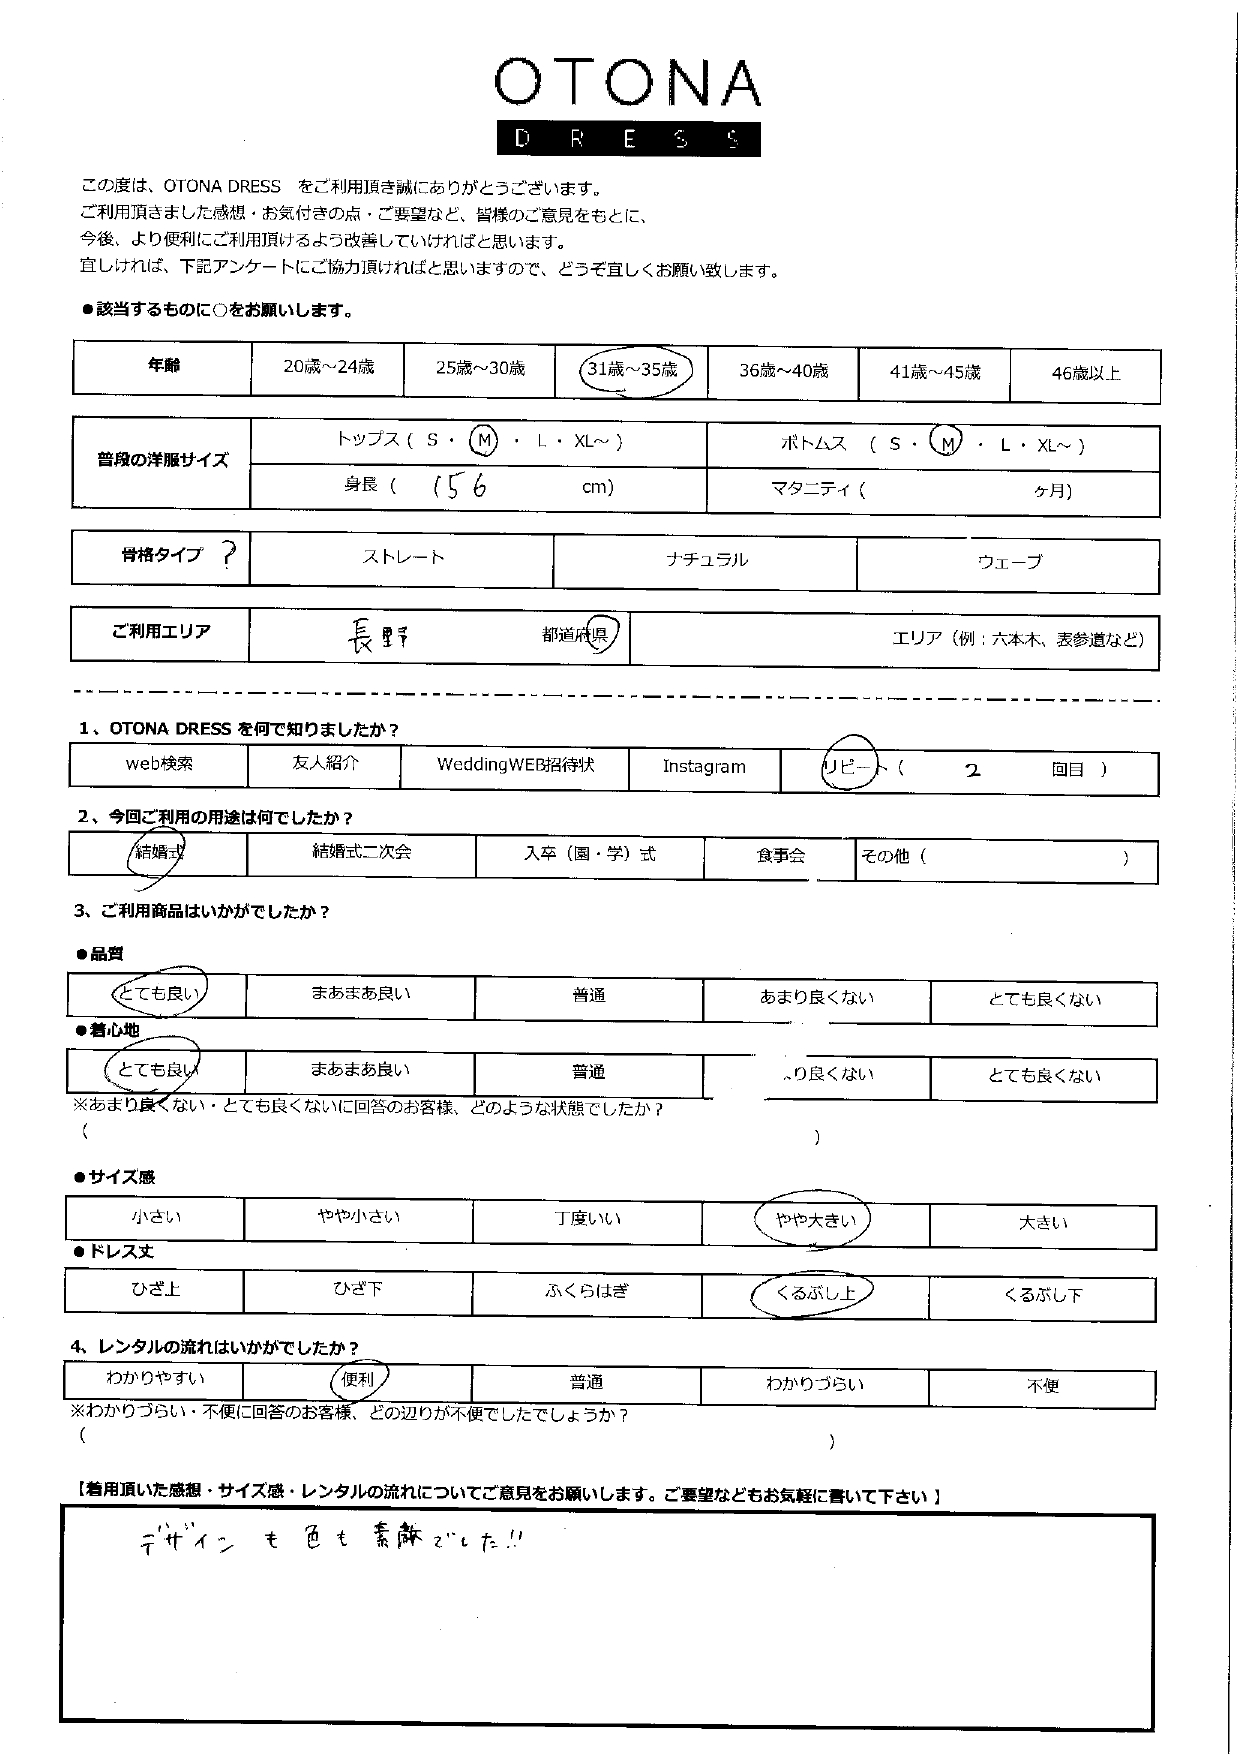 OTONA
DRESS
この度は、OTONA DRESS をご利用頂き誠にありがとうございます。
ご利用頂きました感想・お気付きの点・ご要望など、皆様のご意見をもとに、
今後、より便利にご利用頂けるよう改善していければと思います。
宜しければ、下記アンケートにご協力頂ければと思いますので、どうぞ宜しくお願い致します。
●該当するものに○をお願いします。
年齢 20歳～24歳 25歳～30歳 31歳～35歳 36歳～40歳 41歳～45歳 46歳以上
普段の洋服サイズ トップス ( S ・ M ・ L ・ XL～ ) ボトムス ( S ・ M ・ L ・ XL～ )
身長 ( 156 cm) マタニティ ( ヶ月)
骨格タイプ ? ストレート ナチュラル ウェーブ
ご利用エリア 長野 都道府県 エリア（例：六本木、表参道など）
1、OTONA DRESS を何で知りましたか？
web検索 友人紹介 WeddingWEB招待状 Instagram リピート ( 2 回目 )
2、今回ご利用の用途は何でしたか？
結婚式 結婚式二次会 入卒（園・学）式 食事会 その他 ( )
3、ご利用商品はいかがでしたか？
●品質
とても良い まあまあ良い 普通 あまり良くない とても良くない
●着心地
とても良い まあまあ良い 普通 り良くない とても良くない
※あまり良くない・とても良くないに回答のお客様、どのような状態でしたか？
( )
●サイズ感
小さい やや小さい 丁度いい やや大きい 大きい
●ドレス丈
ひざ上 ひざ下 ふくらはぎ くるぶし上 くるぶし下
4、レンタルの流れはいかがでしたか？
わかりやすい 便利 普通 わかりづらい 不便
※わかりづらい・不便に回答のお客様、どの辺りが不便でしたでしょうか？
( )
【着用頂いた感想・サイズ感・レンタルの流れについてご意見をお願いします。ご要望などもお気軽に書いて下さい】
デザインも色も素敵でした!!